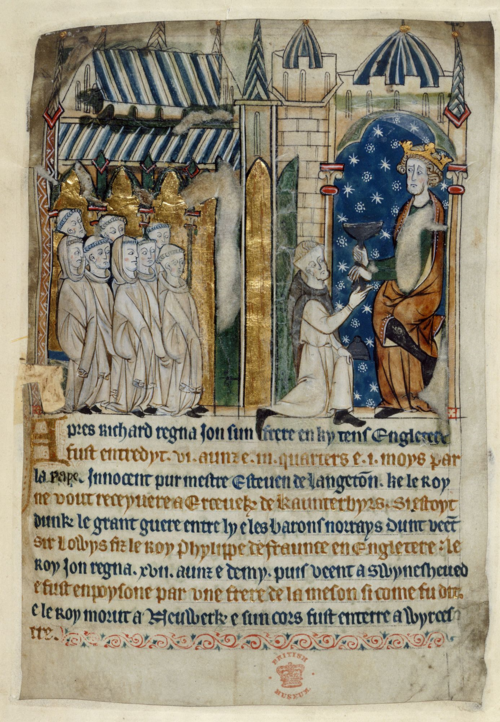 Apres Richard regna Jon sun frere en ky tens Engletere
fust entredyt .vi. aunz e .iii. quarters e .i. moys par
la pape Innocent pur mestre Esteven de Langeton, ke le Roy
ne vout receyvere a Ercevek de Kaunterbyrs. Si estoyt
dunk le grant guere entre ly e les barons norrays dunt veent
sir Lowys fiz le Roy Phylippe de fraunce en Engletere. Le
Roy Jon regna .xvii. aunz e demy. puis veent a Swynesheued
e fust enpoysone par une frere de la meson si come fu dit.
e le Roy morut a Neuwerk e sun cors fust enterre a Wyrces
tre.
BRITISH
MUSEUM